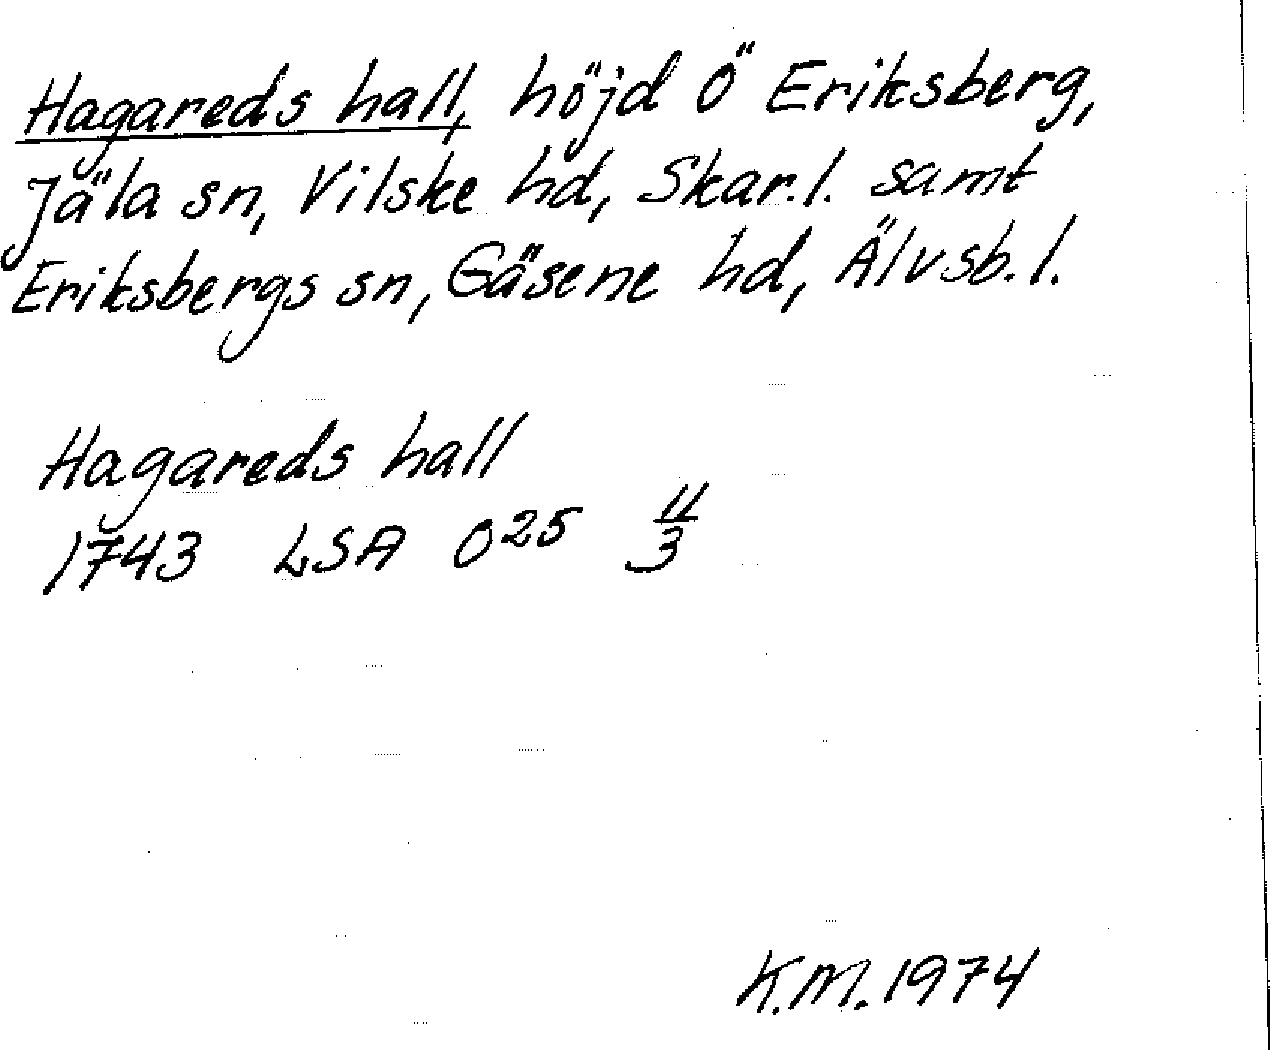 Hagareds hall, höjd Ö Eriksberg,
Jäla sn, Vilske hd, Skar.l. samt
Eriksbergs sn, Gäsene hd, Älvsb.l.
Hagareds hall
1743 LSA O25 11/3
K.M. 1974